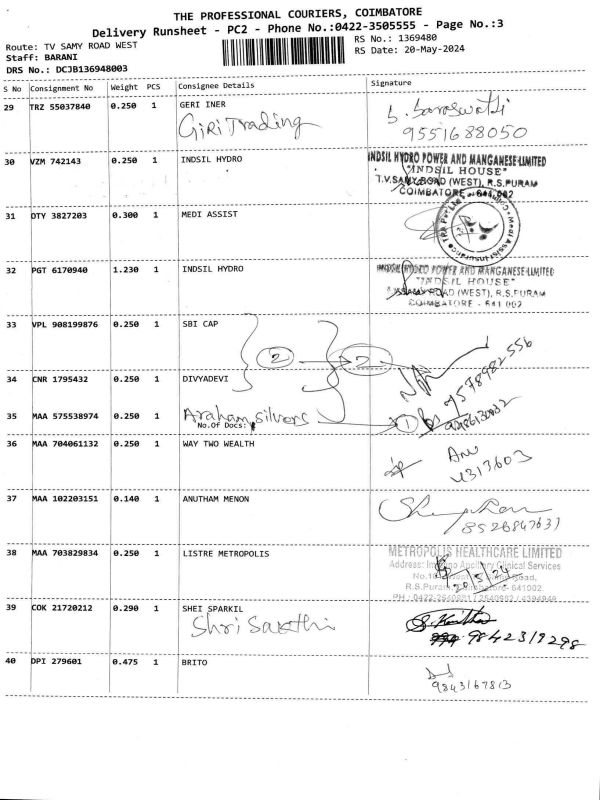 THE PROFESSIONAL COURIERS, COIMBATORE
Delivery Runsheet - PC2 - Phone No.:0422-3505555 - Page No.:3
Route: TV SAMY ROAD WEST
RS No.: 1369480
Staff: BARANI
RS Date: 20-May-2024
DRS No.: DCJB136948003
S No Consignment No Weight PCS Consignee Details Signature
29 TRZ 55037840 0.250 1 GERI INER
GiRi Trading
9551688050
30 VZM 742143 0.250 1 INDSIL HYDRO
INDSIL HYDRO POWER AND MANGANESE LIMITED
"INDSIL HOUSE"
T.V.SAMY ROAD (WEST), R.S.PURAM
COIMBATORE - 641 002
31 DTY 3827203 0.300 1 MEDI ASSIST
Medi Assist Insurance TPA Pvt Ltd
32 PGT 6170940 1.230 1 INDSIL HYDRO
INDSIL HYDRO POWER AND MANGANESE LIMITED
"INDSIL HOUSE"
ROAD (WEST), R.S.PURAM
COIMBATORE - 641 002
33 VPL 908199876 0.250 1 SBI CAP
2 2
34 CNR 1795432 0.250 1 DIVYADEVI
35 MAA 575538974 0.250 1 Araham silvers
No.Of Docs:
1
36 MAA 704061132 0.250 1 WAY TWO WEALTH
Anu
4313603
37 MAA 102203151 0.140 1 ANUTHAM MENON
38 MAA 703829834 0.250 1 LISTRE METROPOLIS
METROPOLIS HEALTHCARE LIMITED
Address: Ancillary Clinical Services
Road,
R.S.Puram, Coimbatore- 641002
20/5/24
39 COK 21720212 0.290 1 SHEI SPARKIL
Shri Sakthi
9842319298
40 DPI 279601 0.475 1 BRITO
9843167813